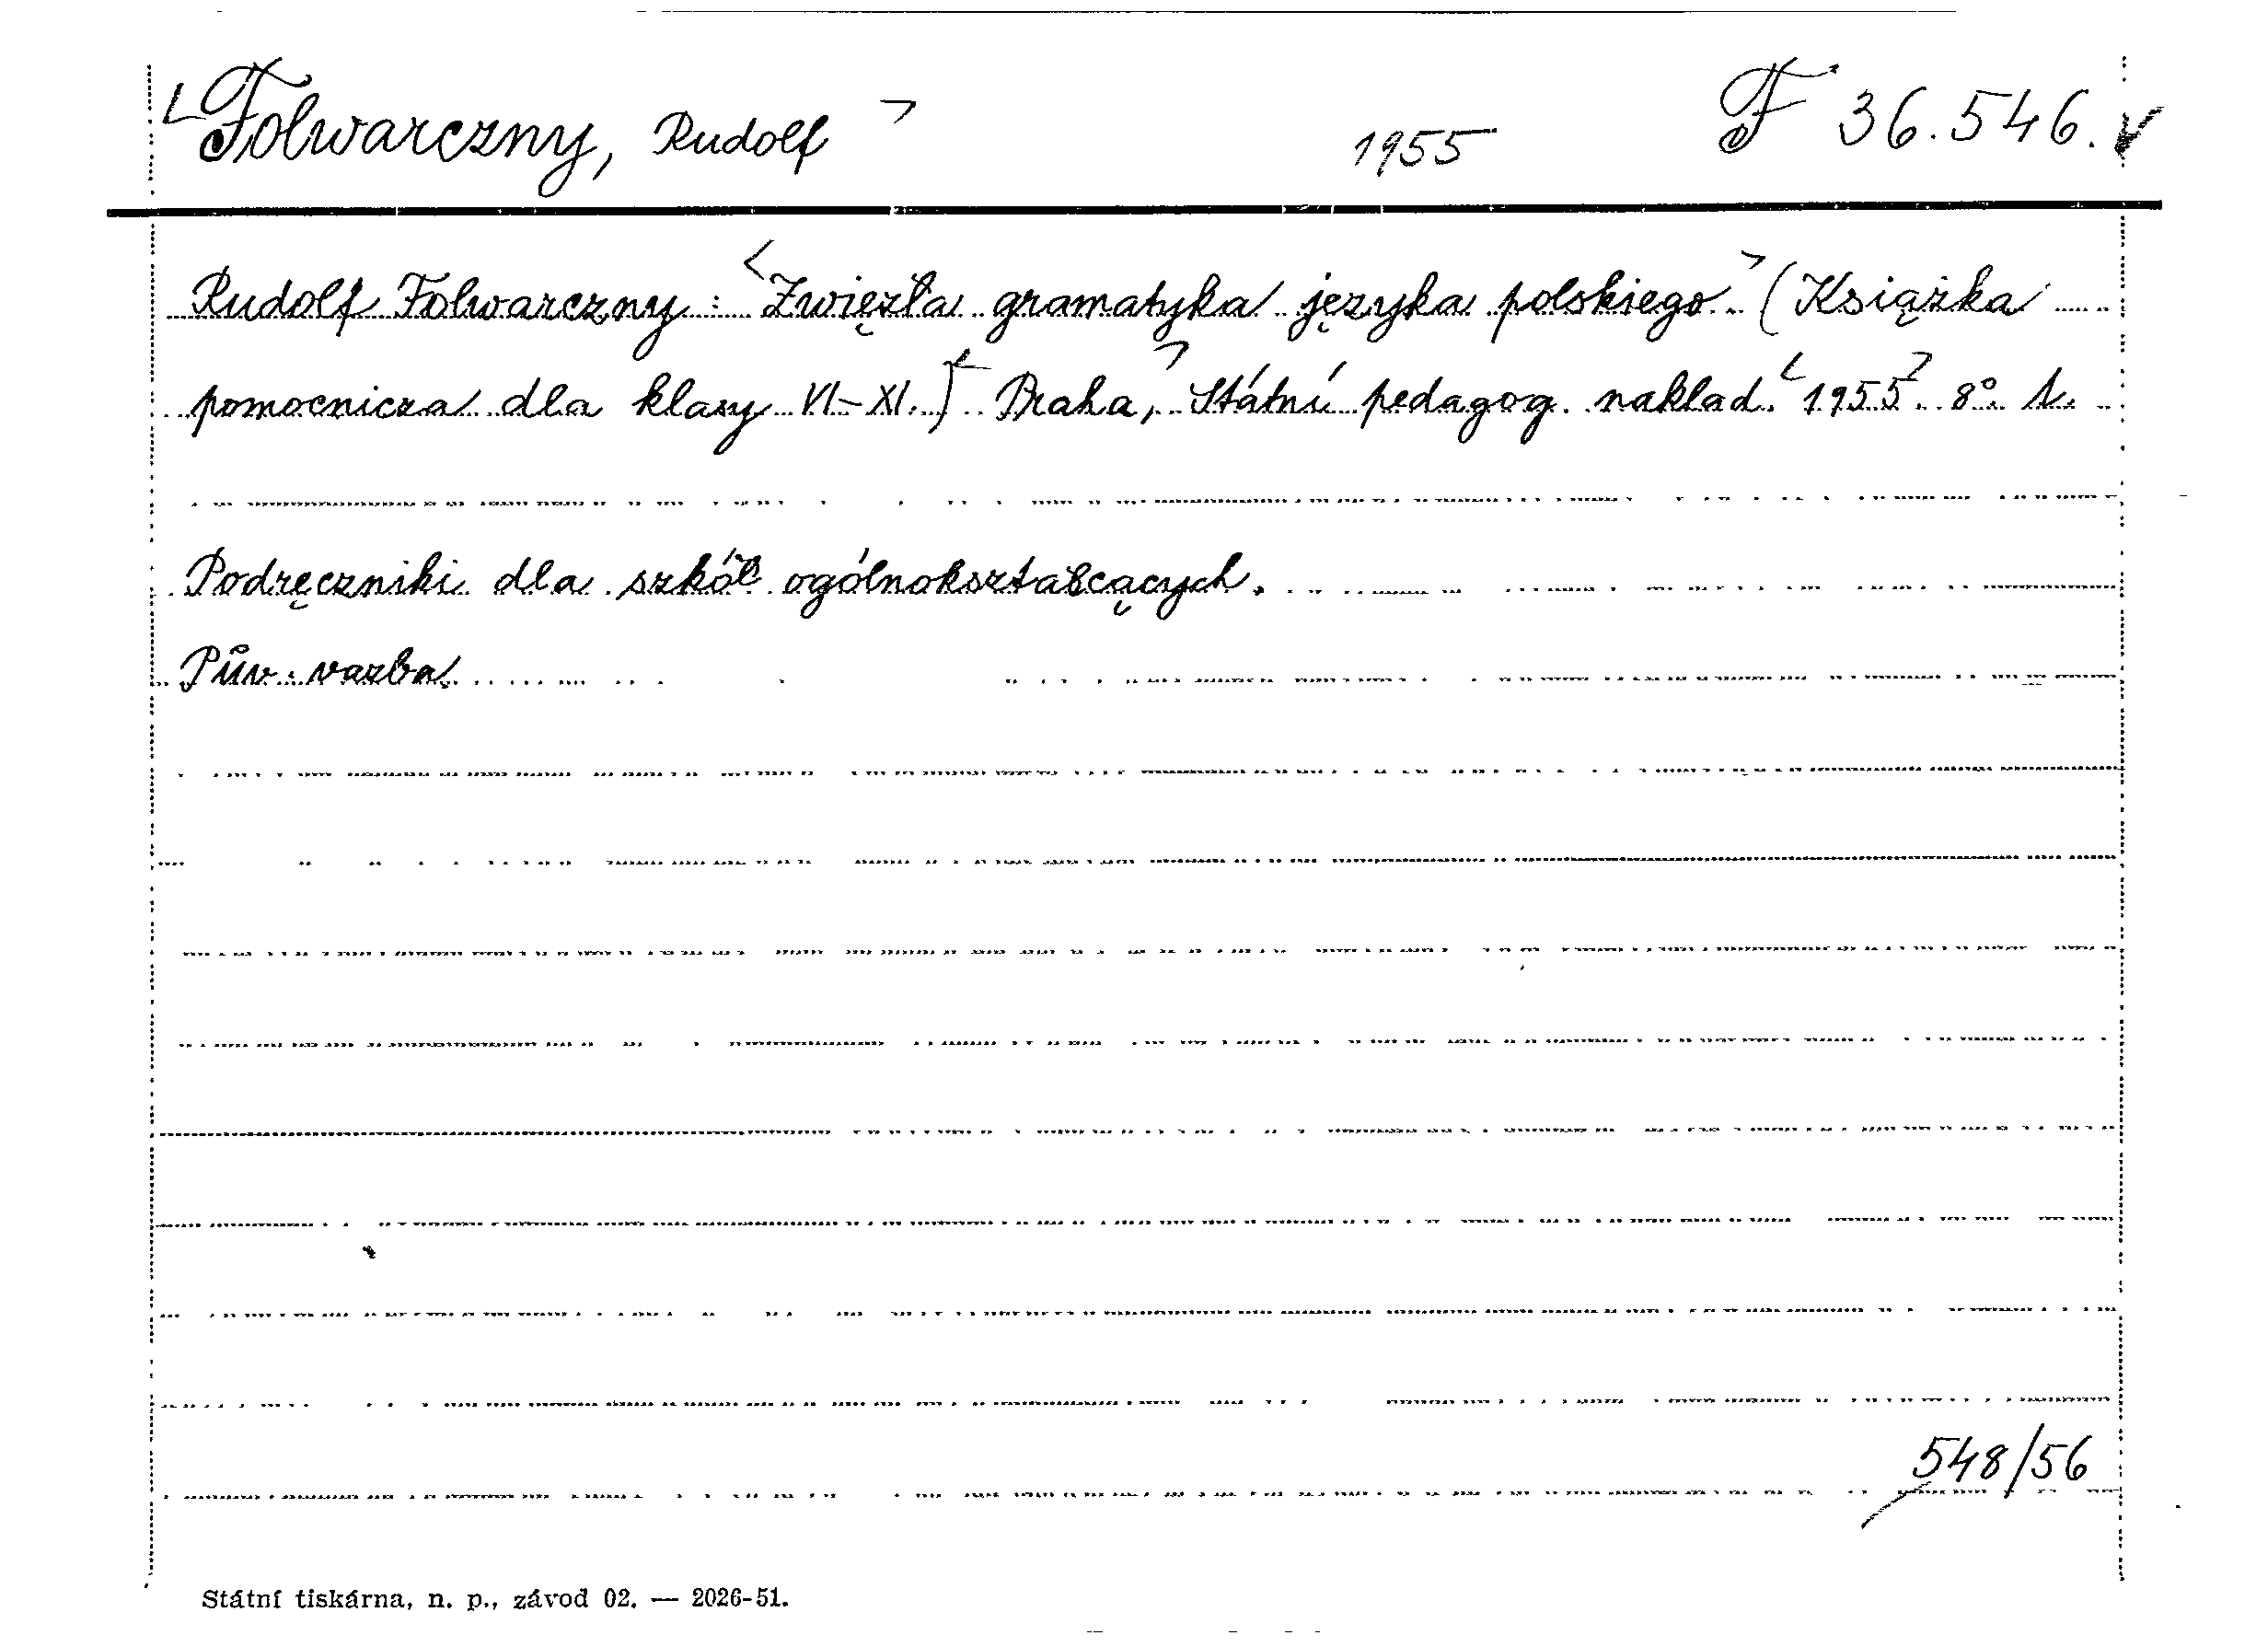 Folwarczny, Rudolf 1955 F 36.546.
Rudolf Folwarczny: Zwięzła gramatyka języka polskiego. (Książka
pomocnicza dla klasy VI-XI.) Praha, Státní pedagog. naklad. 1955. 8° 1.
Podręczniki dla szkół ogólnokształcących.
Pův. vazba.
548/56
Státní tiskárna, n. p., závod 02. — 2026-51.